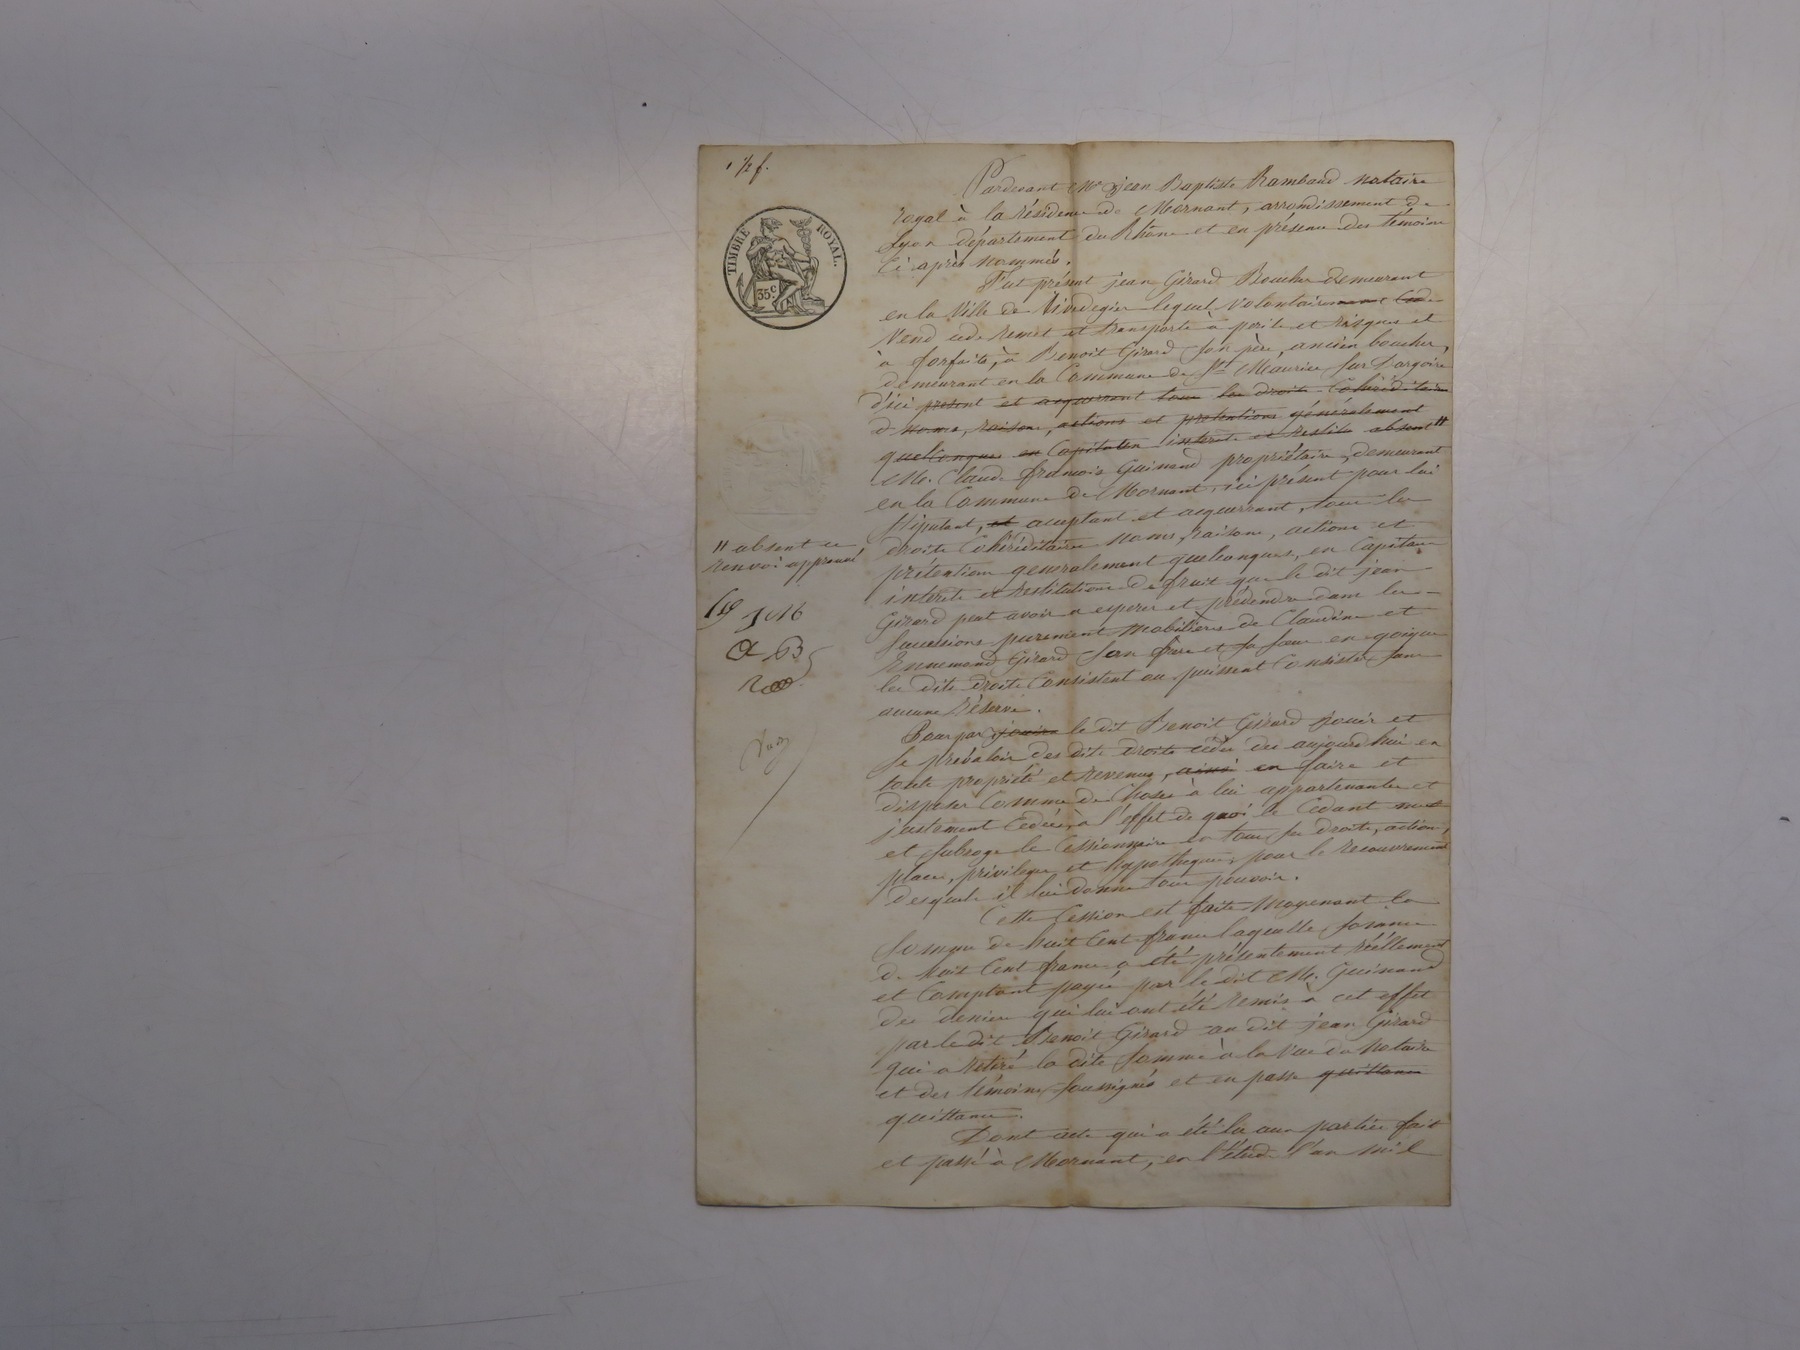 1 1/2 f.
TIMBRE ROYAL.
35 c.
Pardevant Me jean Baptiste Rambaud notaire
royal à la résidence de Mornant, arrondissement de
Lyon département du Rhône et en présence des témoins
ci après nommés.
Fut présent jean Girard Boucher demeurant
en la Ville de lequel volontairement Cède
Vend cede remet et transporte à perils et risques et
à forfaits, à Benoit Girard son père, ancien boucher,
demeurant en la Commune de St Maurice sur Dargoire
d'ici présent et acquerrant tous les droits Cohéréditaires
noms, raisons, actions et prétentions généralement
quelconques en Capitaux interets et restit absent "
Me. Claude françois Guinand propriétaire, demeurant
en la Commune de Mornant, ici présent pour lui
stipulant, et acceptant et acquerrant, tous les
droits Cohéréditaires noms, raisons, actions et
prétentions generalement quelconques, en Capitaux
intérets et restitutions de fruits que le dit jean
Girard peut avoir a esperer et prétendre dans les
successions purement mobilières de Claudine et
Ennemond Girard son frère et sa sœur en quoique
les dits droits Consistent ou puissent Consister sans
aucune réserve.
" absent ce
renvoi approuvé
Pour par jouira le dit Benoit Girard jouir et
se prévaloir des dits droits cédés dès aujourd'hui en
toute propriété et revenus, ainsi en faire et
disposer Comme de Choses à lui appartenantes et
justement Cedées, à l'effet de quoi le Cedant met
et subroge le Cessionnaire en tous ses droits, actions,
place, privileges et hypotheques, pour le recouvrement
desquels il lui donne tous pouvoirs.
Cette Cession est faite moyenant la
somme de huit Cent francs laquelle somme
de huit Cent francs a été présentement réellement
et Comptant payée par le dit Me. Guinand
des deniers qui lui ont été remis à cet effet
par le dit Benoit Girard au dit jean Girard
qui a retiré la dite somme à la vue du notaire
et des témoins soussignés et en passe quittance
quittance.
Dont acte qui a été lu aux parties fait
et passé à Mornant, en l'étude l'an mil